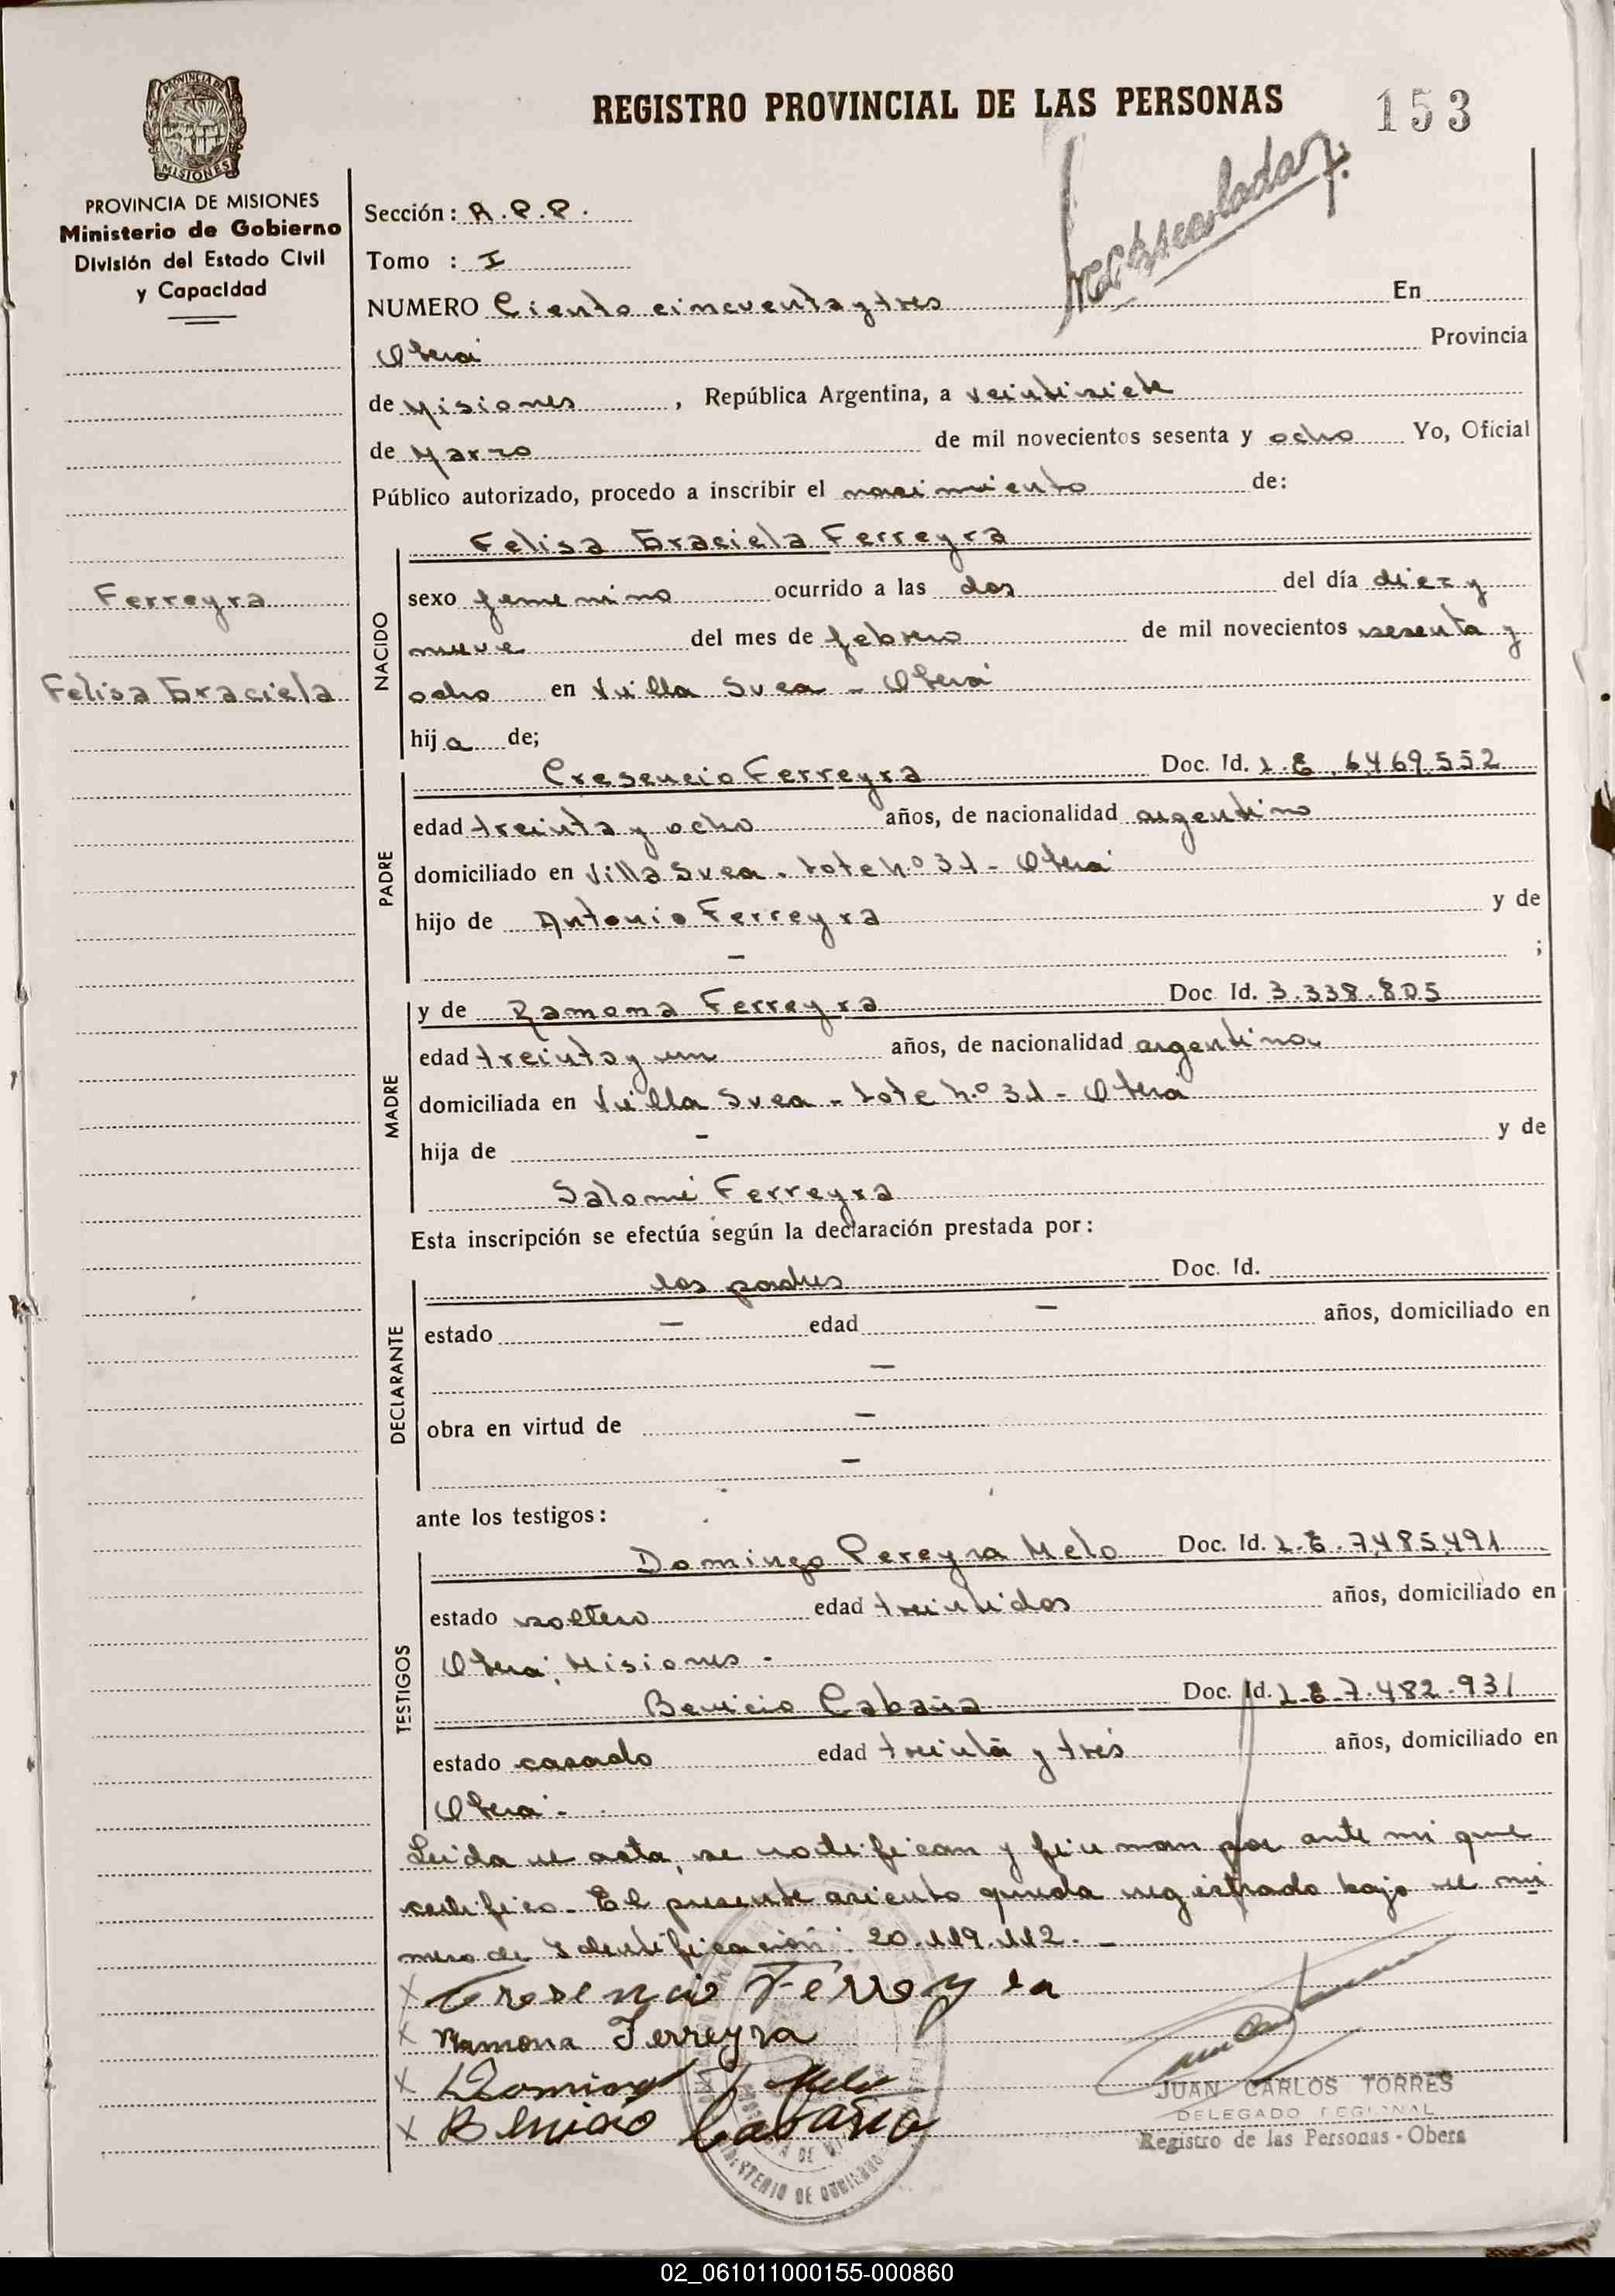 REGISTRO PROVINCIAL DE LAS PERSONAS
153
PROVINCIA DE MISIONES
MISIONES
PROVINCIA DE MISIONES
Ministerio de Gobierno
División del Estado Civil
y Capacidad
Sección: A.P.P.
Tomo : I
NUMERO Ciento cincuenta y tres En
Oberá Provincia
de Misiones, República Argentina, a veintisiete
de Marzo de mil novecientos sesenta y ocho Yo, Oficial
Público autorizado, procedo a inscribir el nacimiento de:
Ferreyra
Felisa Graciela
NACIDO
Felisa Graciela Ferreyra
sexo femenino ocurrido a las dos del día diez y
nueve del mes de febrero de mil novecientos sesenta y
ocho en Villa Svea - Oberá
hija de;
PADRE
Cresencio Ferreyra Doc. Id. L.E. 6469552
edad treinta y ocho años, de nacionalidad argentino
domiciliado en Villa Svea. Lote n.º 31 - Oberá
hijo de Antonio Ferreyra y de
- ;
MADRE
y de Ramona Ferreyra Doc. Id. 3.338.805
edad treinta y un años, de nacionalidad argentina
domiciliada en Villa Svea - Lote n.º 31 - Oberá
hija de - y de
Salomé Ferreyra
Esta inscripción se efectúa según la declaración prestada por:
DECLARANTE
los padres Doc. Id.
estado - edad - años, domiciliado en
-
obra en virtud de -
-
ante los testigos:
TESTIGOS
Domingo Pereyra Melo Doc. Id. L.E. 7485491
estado soltero edad treintidos años, domiciliado en
Oberá, Misiones -
Benicio Cabaña Doc. Id. L.E. 7.482.931
estado casado edad treinta y tres años, domiciliado en
Oberá -
Leida el acta, se notifican y firman por ante mi que
certifico. El presente asiento queda registrado bajo el nú
mero de Identificación: 20.119.112. -
x Cresencio Ferreyra
x Ramona Ferreyra
x Domingo P. Melo
x Benicio Cabaña
MINISTERIO DE GOBIERNO
JUAN CARLOS TORRES
DELEGADO REGIONAL
Registro de las Personas - Obera
02_061011000155-000860